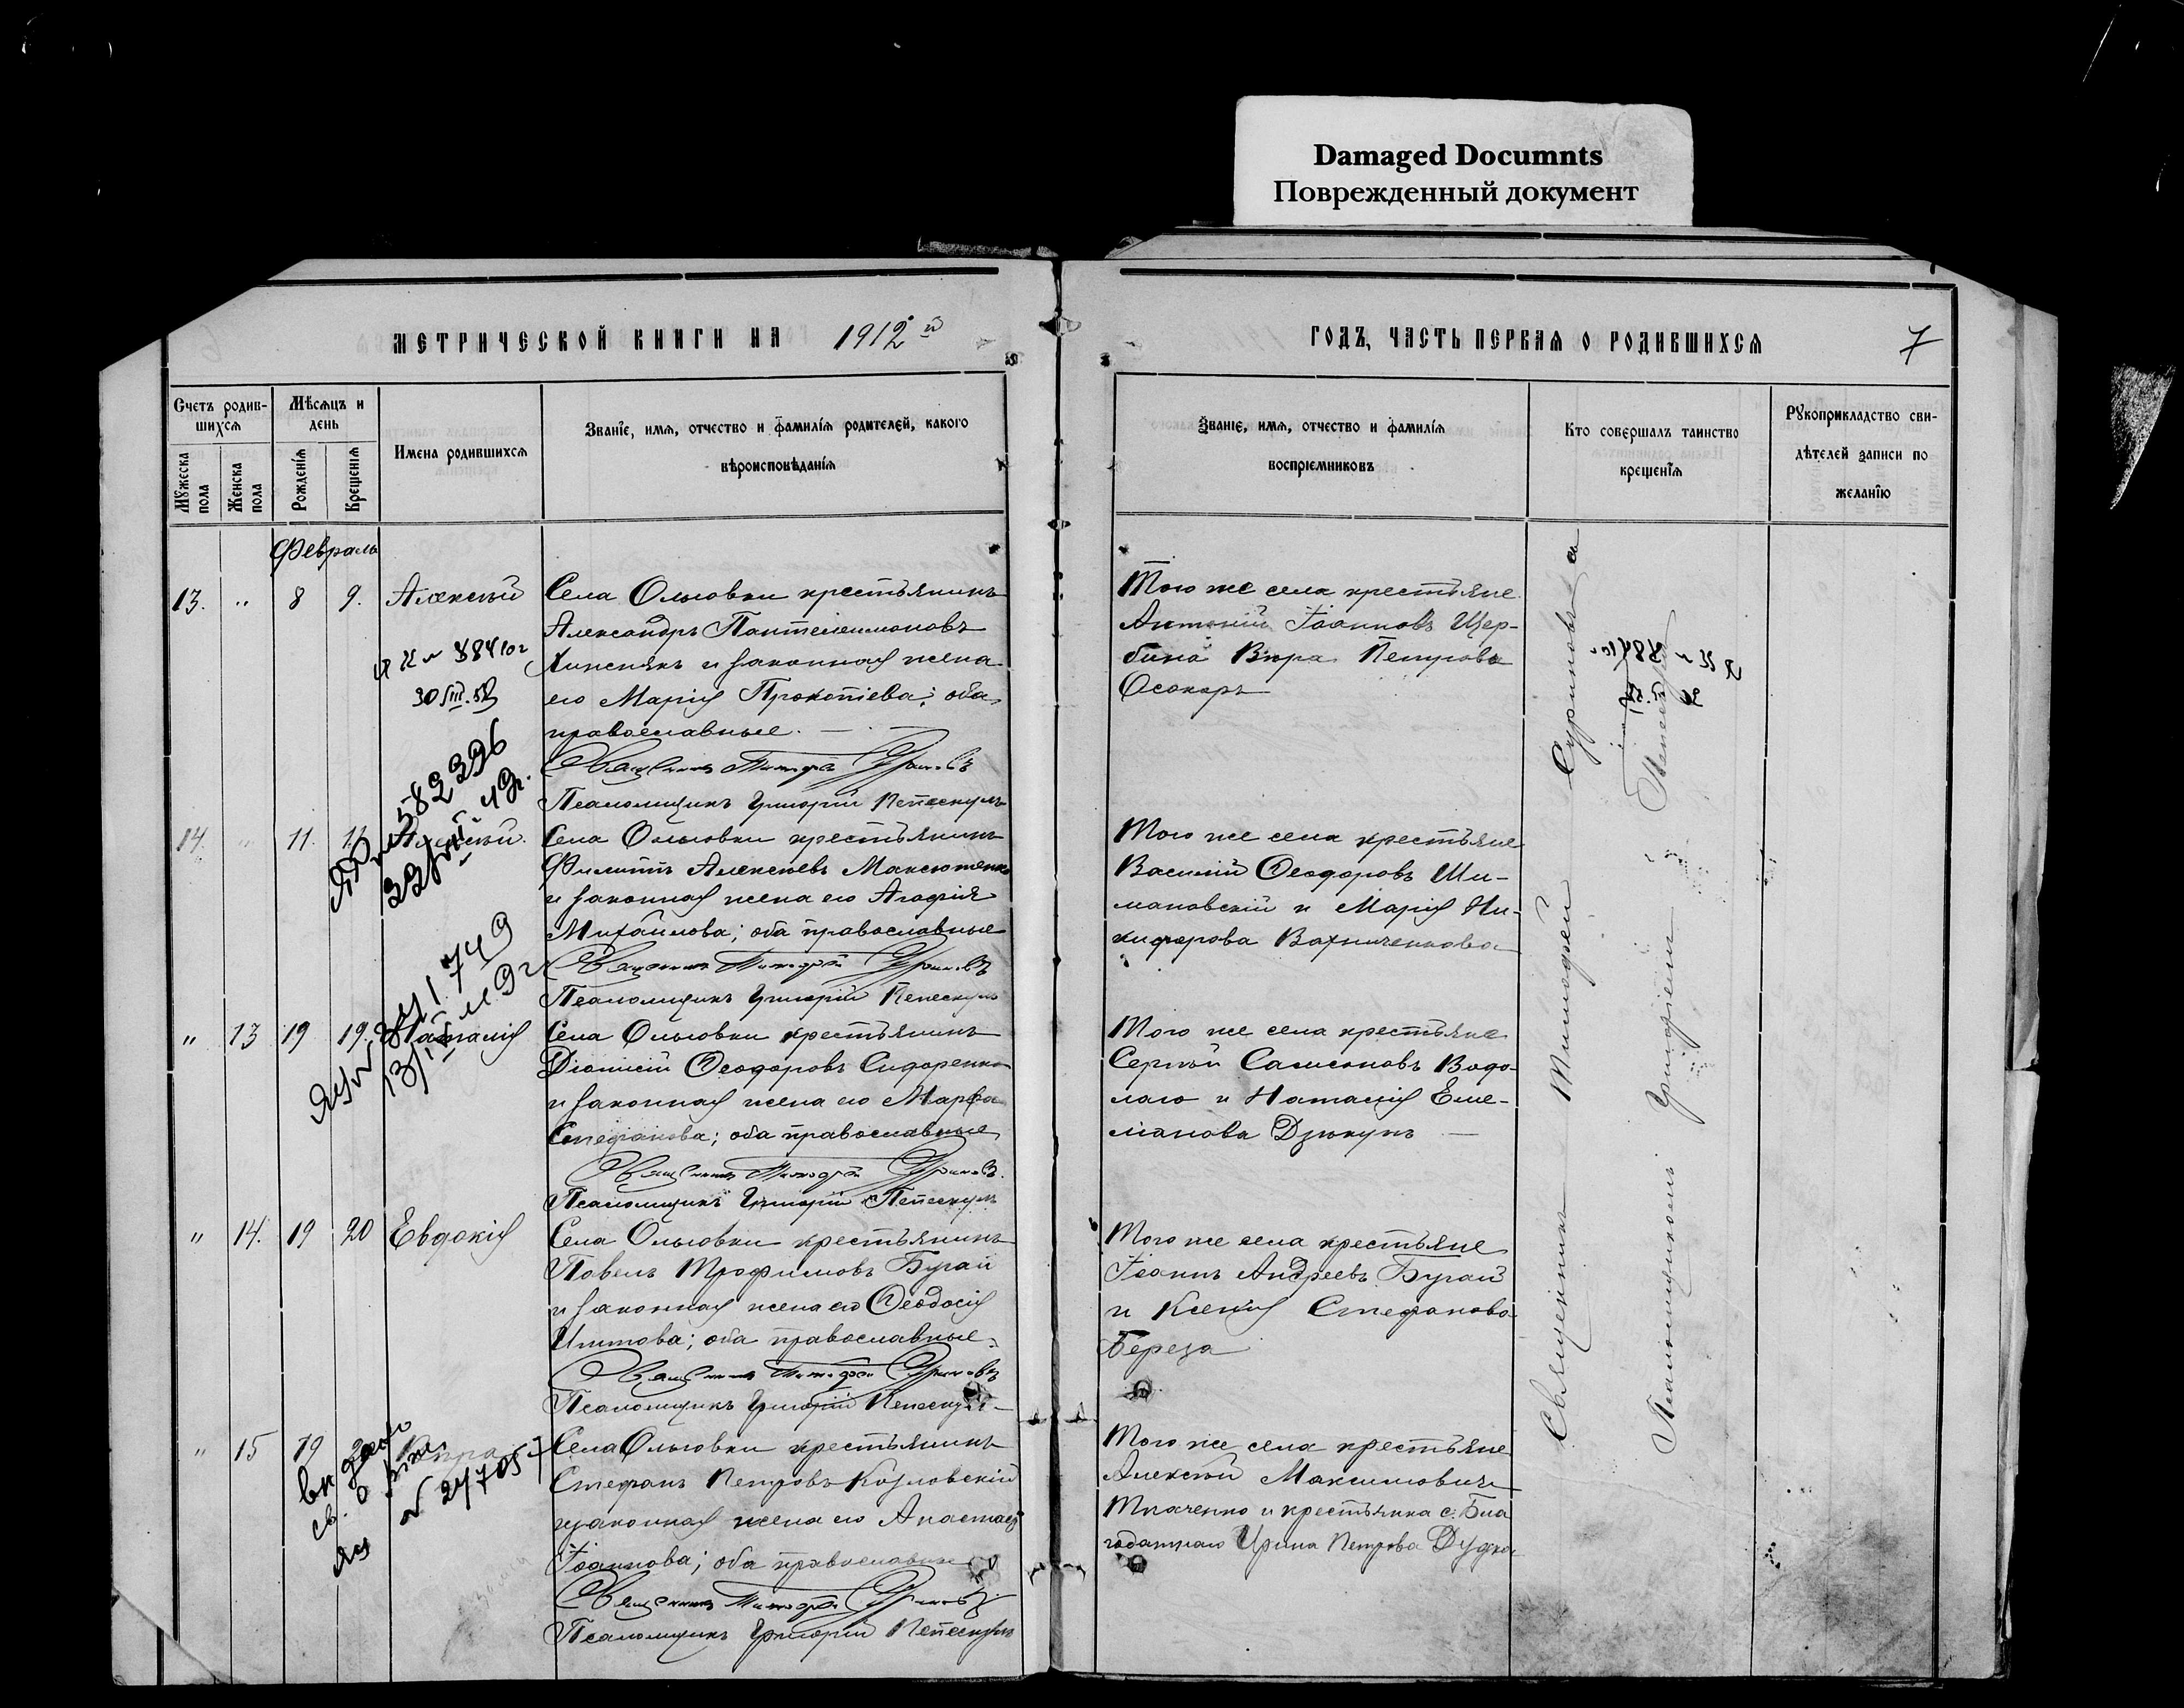 Damaged Documnts
Поврежденный документ
МЕТРИЧЕСКОЙ КНИГИ НА 1912й
ГОДЪ, ЧАСТЬ ПЕРВАЯ О РОДИВШИХСЯ
7
Счетъ родив-
шихся
Мужеска
пола
Женска
пола
Мѣсяцъ и
день
Рожденія
Крещенія
Имена родившихся
Званіе, имя, отчество и фамилія родителей, какого
вѣроисповѣданія
Званіе, имя, отчество и фамилія
воспріемниковъ
Кто совершалъ таинство
крещенія
Рукоприкладство сви-
дѣтелей записи по
желанію
Февраль
13. " 8 9. Алексѣй
Села Ольговки крестьянинъ
Александръ Пантелеимоновъ
и законная жена
его Марія Прокопіева; оба
православные.
Священникъ Тимофей Суриновъ
Псаломщикъ Григорій Пепескулъ
Того же села крестьяне
Антоній Іоанновъ Щер-
бина Вѣра Петрова
Осокоръ
14. " 11. Алексѣй.
Села Ольговки крестьянинъ
Филиппъ Алексѣевъ Максютенко
и законная жена его Агафія
Михайлова; оба православные
Священникъ Тимофей Суриновъ
Псаломщикъ Григорій Пепескулъ
Того же села крестьяне
Василій Ѳеодоровъ Ши-
мановскій и Марія Ни-
кифорова Вахниченкова
582396
" 13 19 19. Наталія
Села Ольговки крестьянинъ
Діонисій Ѳеодоровъ Сидоренко
и законная жена его Марѳа
Стефанова; оба православные
Священникъ Тимофей Суриновъ.
Псаломщикъ Григорій Пепескулъ
Того же села крестьяне
Сергѣй Самсоновъ Водо-
лаго и Наталія Еме-
ліанова Дзюкунъ
" 14. 19 20 Евдокія
Села Ольговки крестьянинъ
Павелъ Трофимовъ Бугай
и законная жена его Ѳеодосія
Титова; оба православные.
Священникъ Тимофей Суриновъ
Псаломщикъ Григорій Пепескулъ
Того же села крестьяне
Іоаннъ Андреевъ Бугай
и Ксенія Стефанова
Береза
" 15 19
№ 24705
Села Ольговки крестьянинъ
Стефанъ Петровъ Козловскій
и законная жена его Анастасія
Іоаннова; оба православные
Священникъ Тимофей Суриновъ.
Псаломщикъ Григорій Пепескулъ
Того же села крестьяне
Алексѣй Максимовичъ
Ткаченко и крестьянка с. Бла
годатнаго Ирина Петрова Дудка
Священникъ Тимофей Суриновъ съ
Псаломщикомъ Григоріемъ